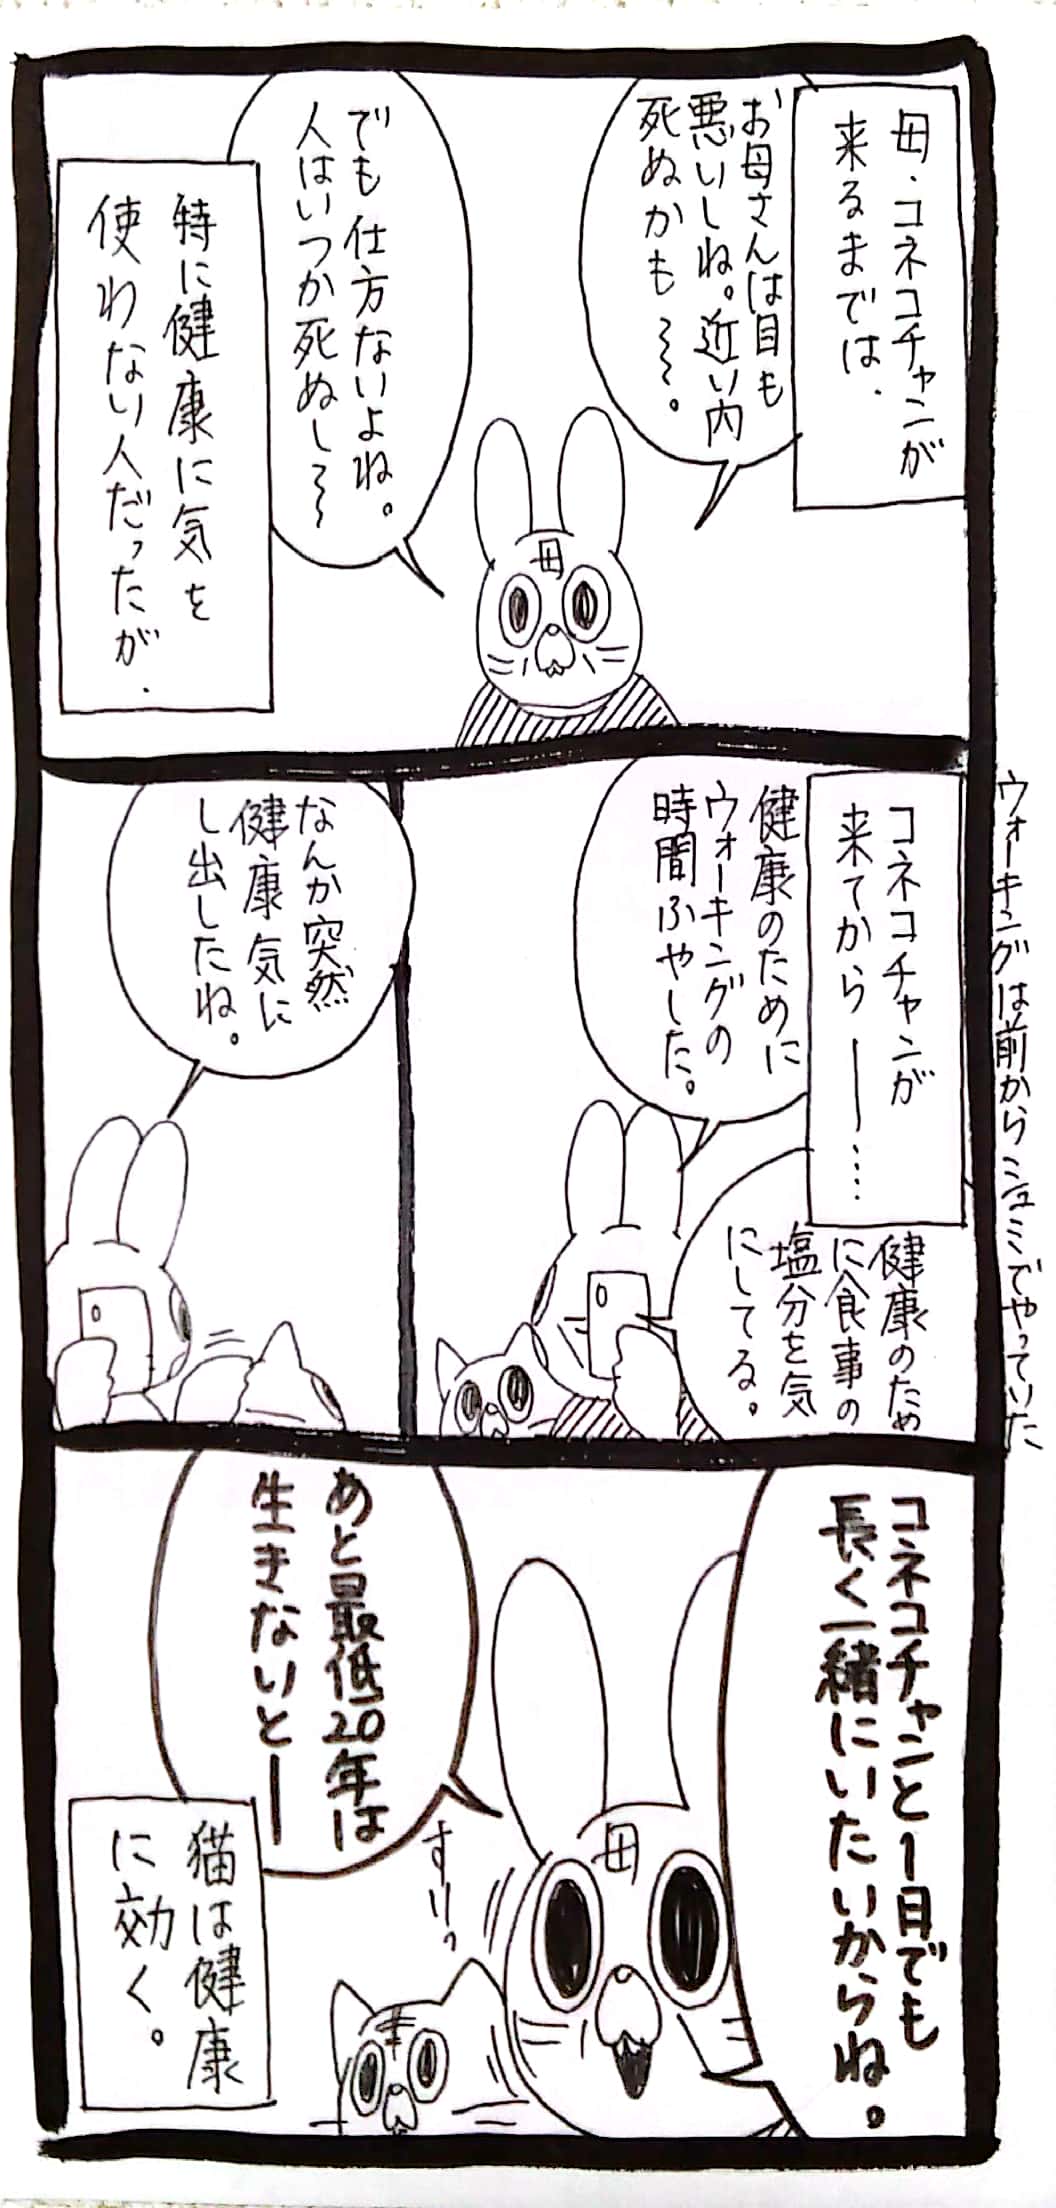 母、コネコチャンが
来るまでは、
お母さんは目も
悪いしね。近い内
死ぬかも〜〜。
でも仕方ないよね。
人はいつか死ぬし〜〜
特に健康に気を
使わない人だったが、
母
コネコチャンが
来てから――……
健康のために
ウォーキングの
時間ふやした。
ウォーキングは前からシュミでやっていた
健康のため
に食事の
塩分を気
にしてる。
なんか突然
健康気に
し出したね。
コネコチャンと1日でも
長く一緒にいたいからね。
あと最低20年は
生きないとー
母
すりっ
猫は健康
に効く。